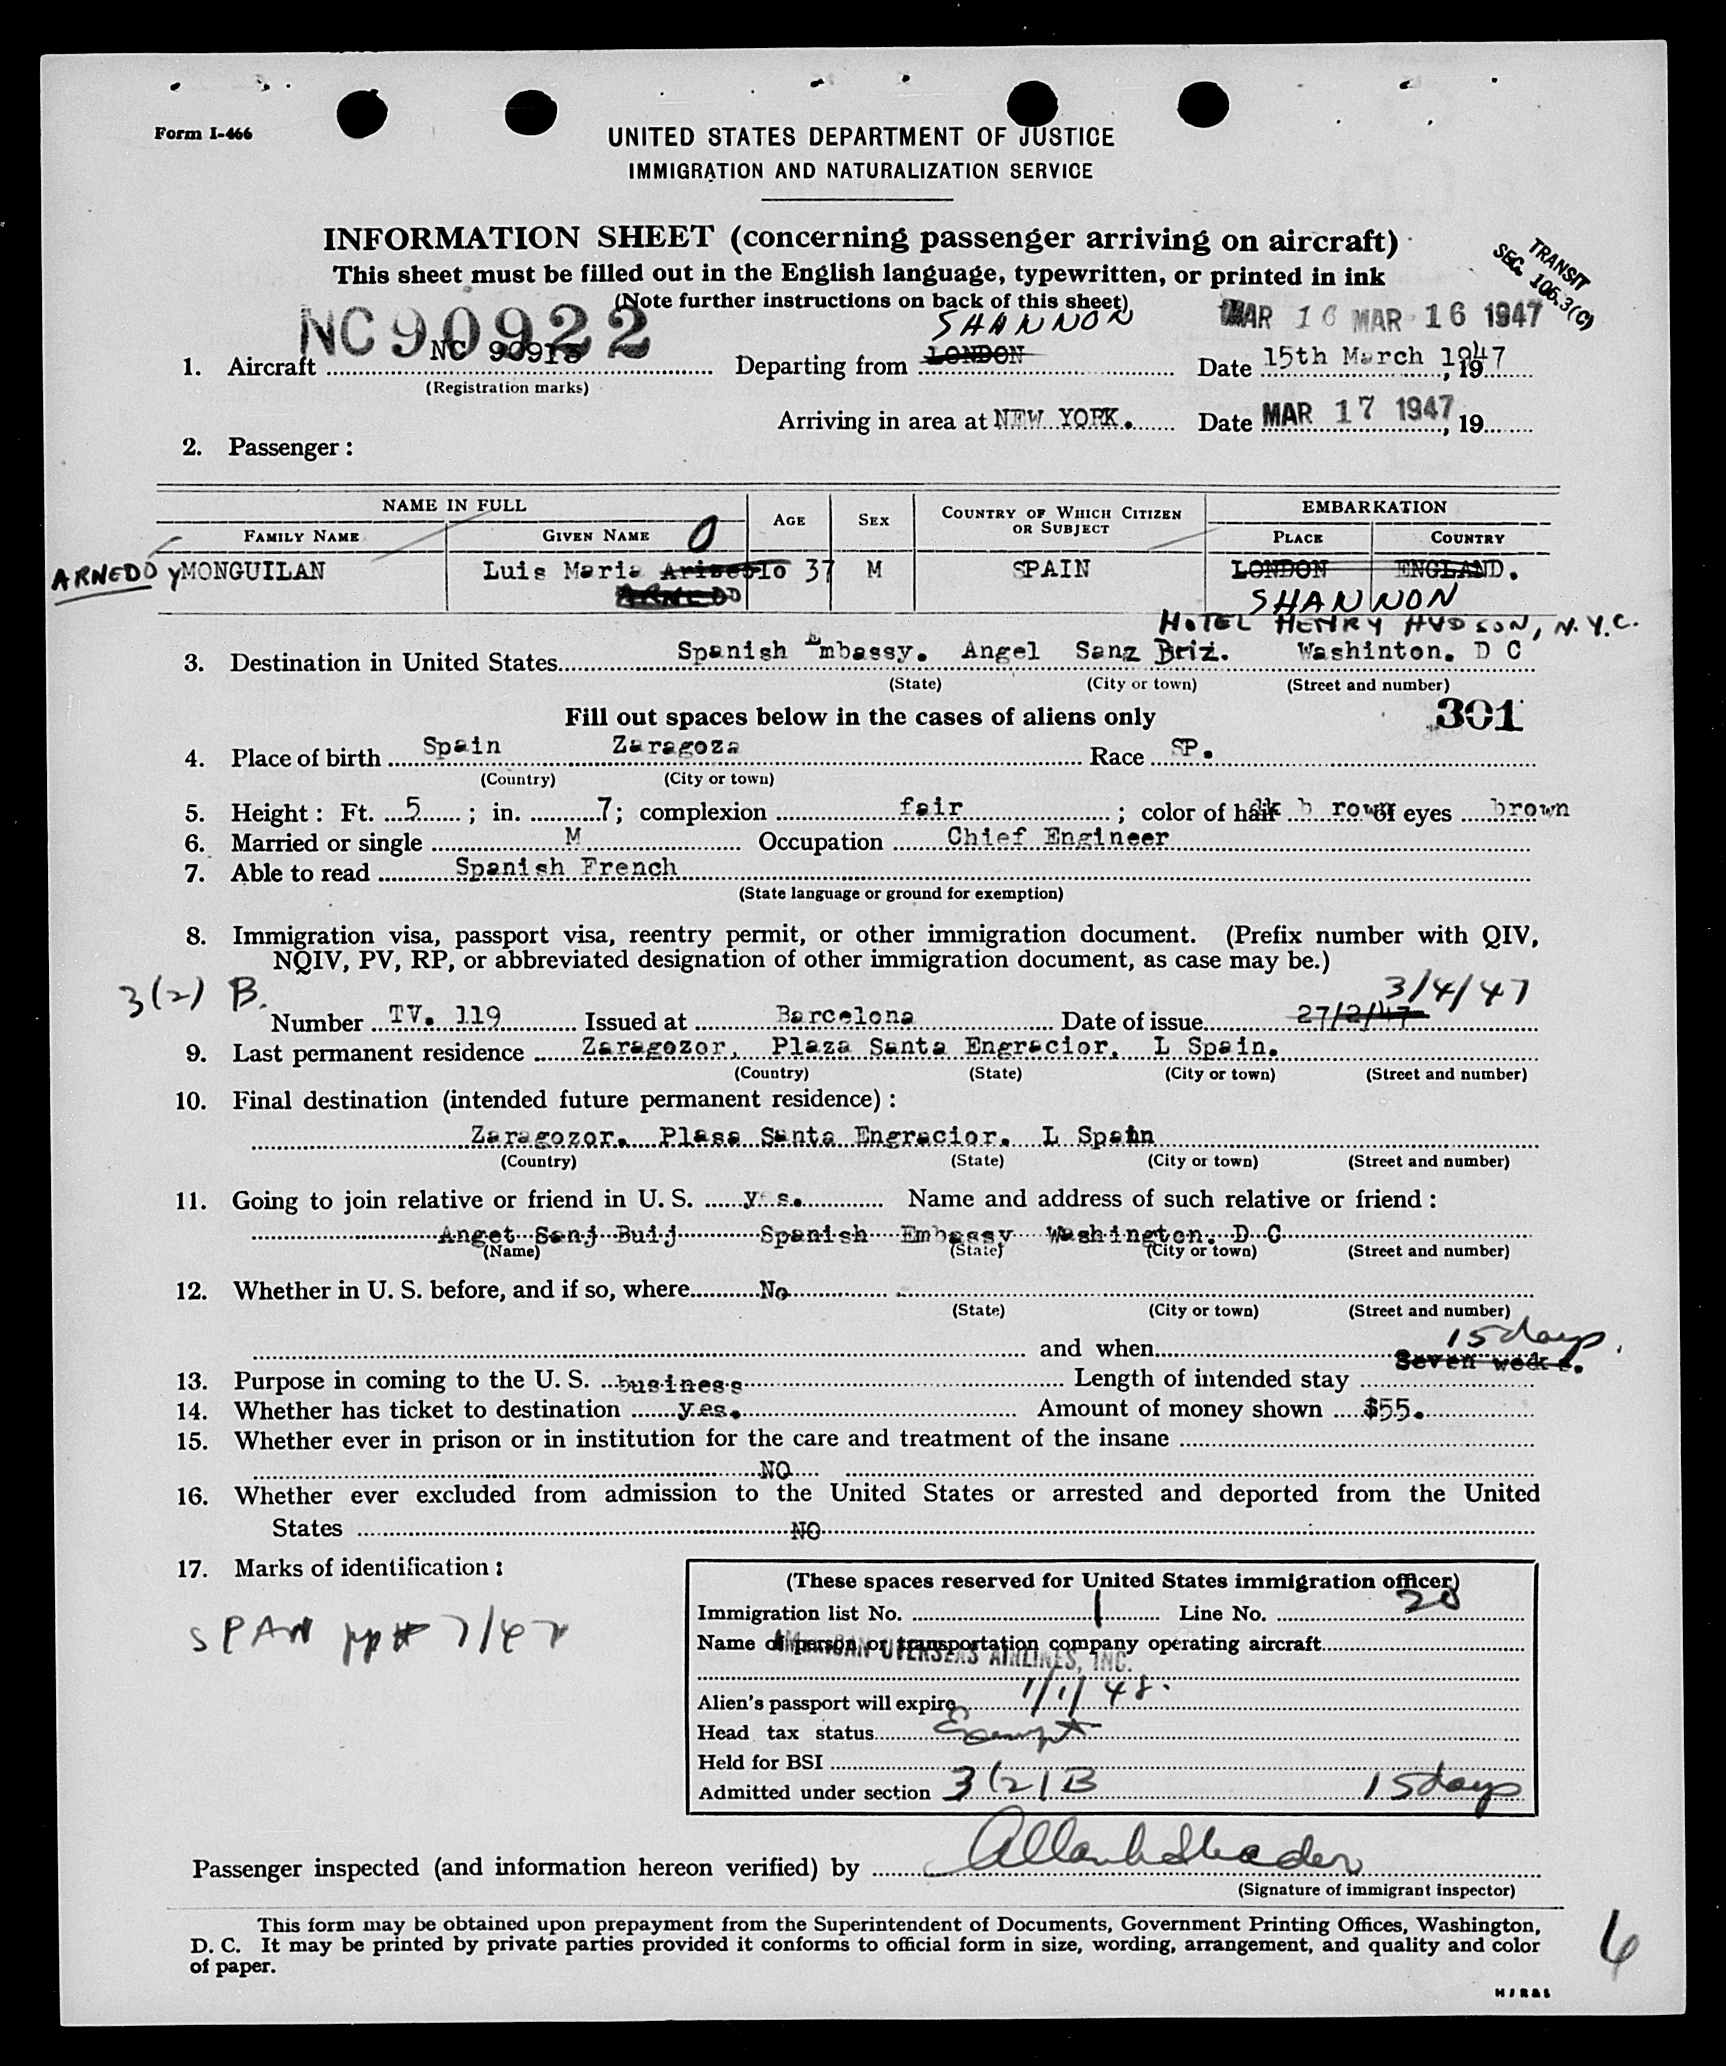 Form I-466
UNITED STATES DEPARTMENT OF JUSTICE
IMMIGRATION AND NATURALIZATION SERVICE
INFORMATION SHEET (concerning passenger arriving on aircraft)
This sheet must be filled out in the English language, typewritten, or printed in ink
(Note further instructions on back of this sheet)
TRANSIT
SEC. 106.3(C)
NC90922 SHANNON MAR 16 MAR 16 1947
1. Aircraft NC 90915 Departing from LONDON Date 15th March 1947, 19
(Registration marks)
Arriving in area at NEW YORK. Date MAR 17 1947, 19
2. Passenger:
NAME IN FULL AGE SEX COUNTRY OF WHICH CITIZEN OR SUBJECT EMBARKATION
FAMILY NAME GIVEN NAME O PLACE COUNTRY
ARNEDO yMONGUILAN Luis Maria 37 M SPAIN LONDON ENGLAND.
ARNEDO SHANNON
HOTEL HENRY HUDSON, N.Y.C.
3. Destination in United States Spanish Embassy. Angel Sanz Briz. Washinton. D C
(State) (City or town) (Street and number)
Fill out spaces below in the cases of aliens only 301
4. Place of birth Spain Zaragoza Race SP.
(Country) (City or town)
5. Height: Ft. 5; in. 7; complexion fair; color of hair dk b rown of eyes brown
6. Married or single M Occupation Chief Engineer
7. Able to read Spanish French
(State language or ground for exemption)
8. Immigration visa, passport visa, reentry permit, or other immigration document. (Prefix number with QIV,
NQIV, PV, RP, or abbreviated designation of other immigration document, as case may be.)
3(2) B. 3/4/47
Number TV. 119 Issued at Barcelona Date of issue 27/2/47
9. Last permanent residence Zaragozor, Plaza Santa Engracior, L Spain.
(Country) (State) (City or town) (Street and number)
10. Final destination (intended future permanent residence):
Zaragozor. Plasa Santa Engracior. L Spain
(Country) (State) (City or town) (Street and number)
11. Going to join relative or friend in U. S. yes. Name and address of such relative or friend:
Anget Sanj Buij Spanish Embassy Washington. D C
(Name) (State) (City or town) (Street and number)
12. Whether in U. S. before, and if so, where No
(State) (City or town) (Street and number)
15 days.
and when Seven weeks.
13. Purpose in coming to the U. S. business Length of intended stay
14. Whether has ticket to destination yes. Amount of money shown $55.
15. Whether ever in prison or in institution for the care and treatment of the insane
NO
16. Whether ever excluded from admission to the United States or arrested and deported from the United
States NO
17. Marks of identification:
SPAN pp# 7/47
(These spaces reserved for United States immigration officer)
Immigration list No. 1 Line No. 20
Name of person or transportation company operating aircraft
AMERICAN OVERSEAS AIRLINES, INC.
Alien's passport will expire 1/1/48.
Head tax status Exempt
Held for BSI
Admitted under section 3(2)B 15 days
Passenger inspected (and information hereon verified) by
(Signature of immigrant inspector)
This form may be obtained upon prepayment from the Superintendent of Documents, Government Printing Offices, Washington,
D. C. It may be printed by private parties provided it conforms to official form in size, wording, arrangement, and quality and color
of paper.
6